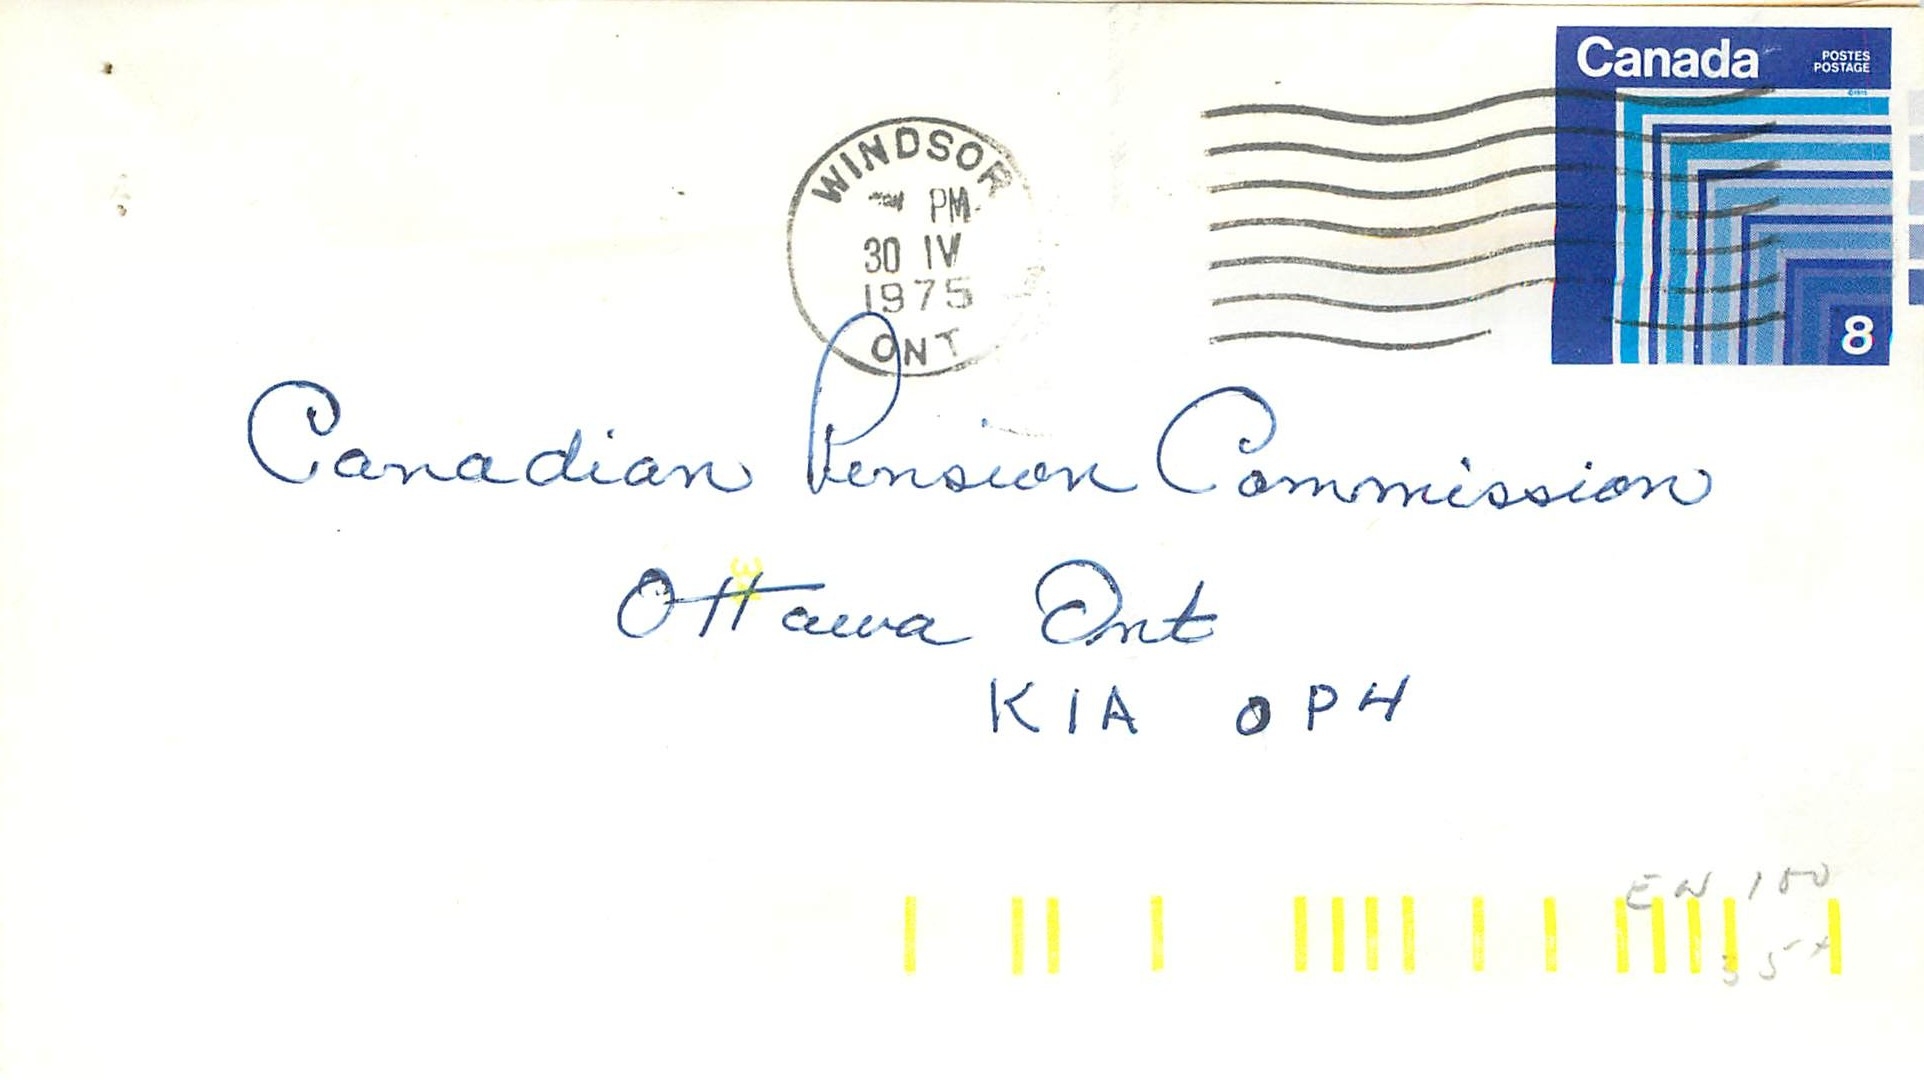 Canada
POSTES
POSTAGE
8
WINDSOR
PM
30 IV
1975
ONT
Canadian Pension Commission
Ottawa Ont
K1A 0P4
EN 100
35